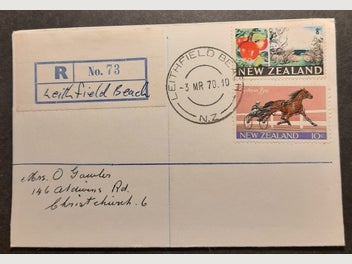 R No. 73
Leithfield Beach
LEITHFIELD BEACH
-3 MR 70.10
N.Z.
8c
NEW ZEALAND
NEW ZEALAND 10c
Mrs. O Gawler
146 Aldwins Rd.
Christchurch. 6